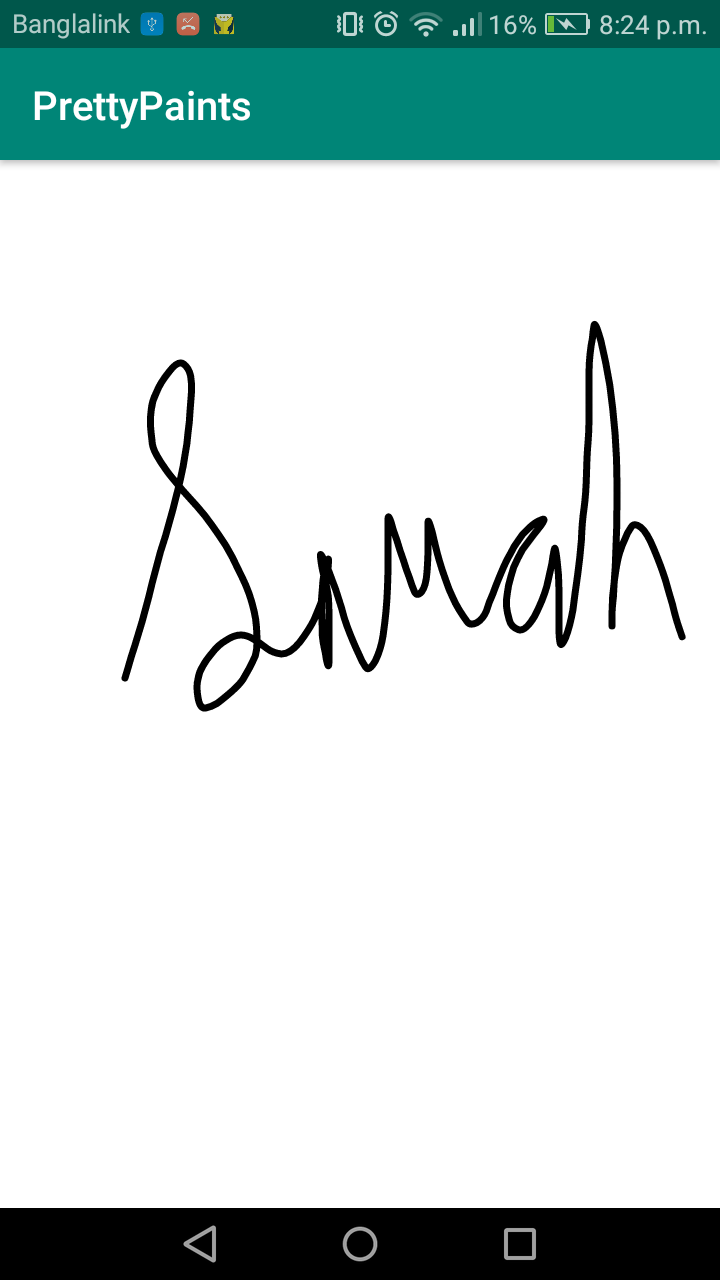 Banglalink 16% 8:24 p.m.
PrettyPaints